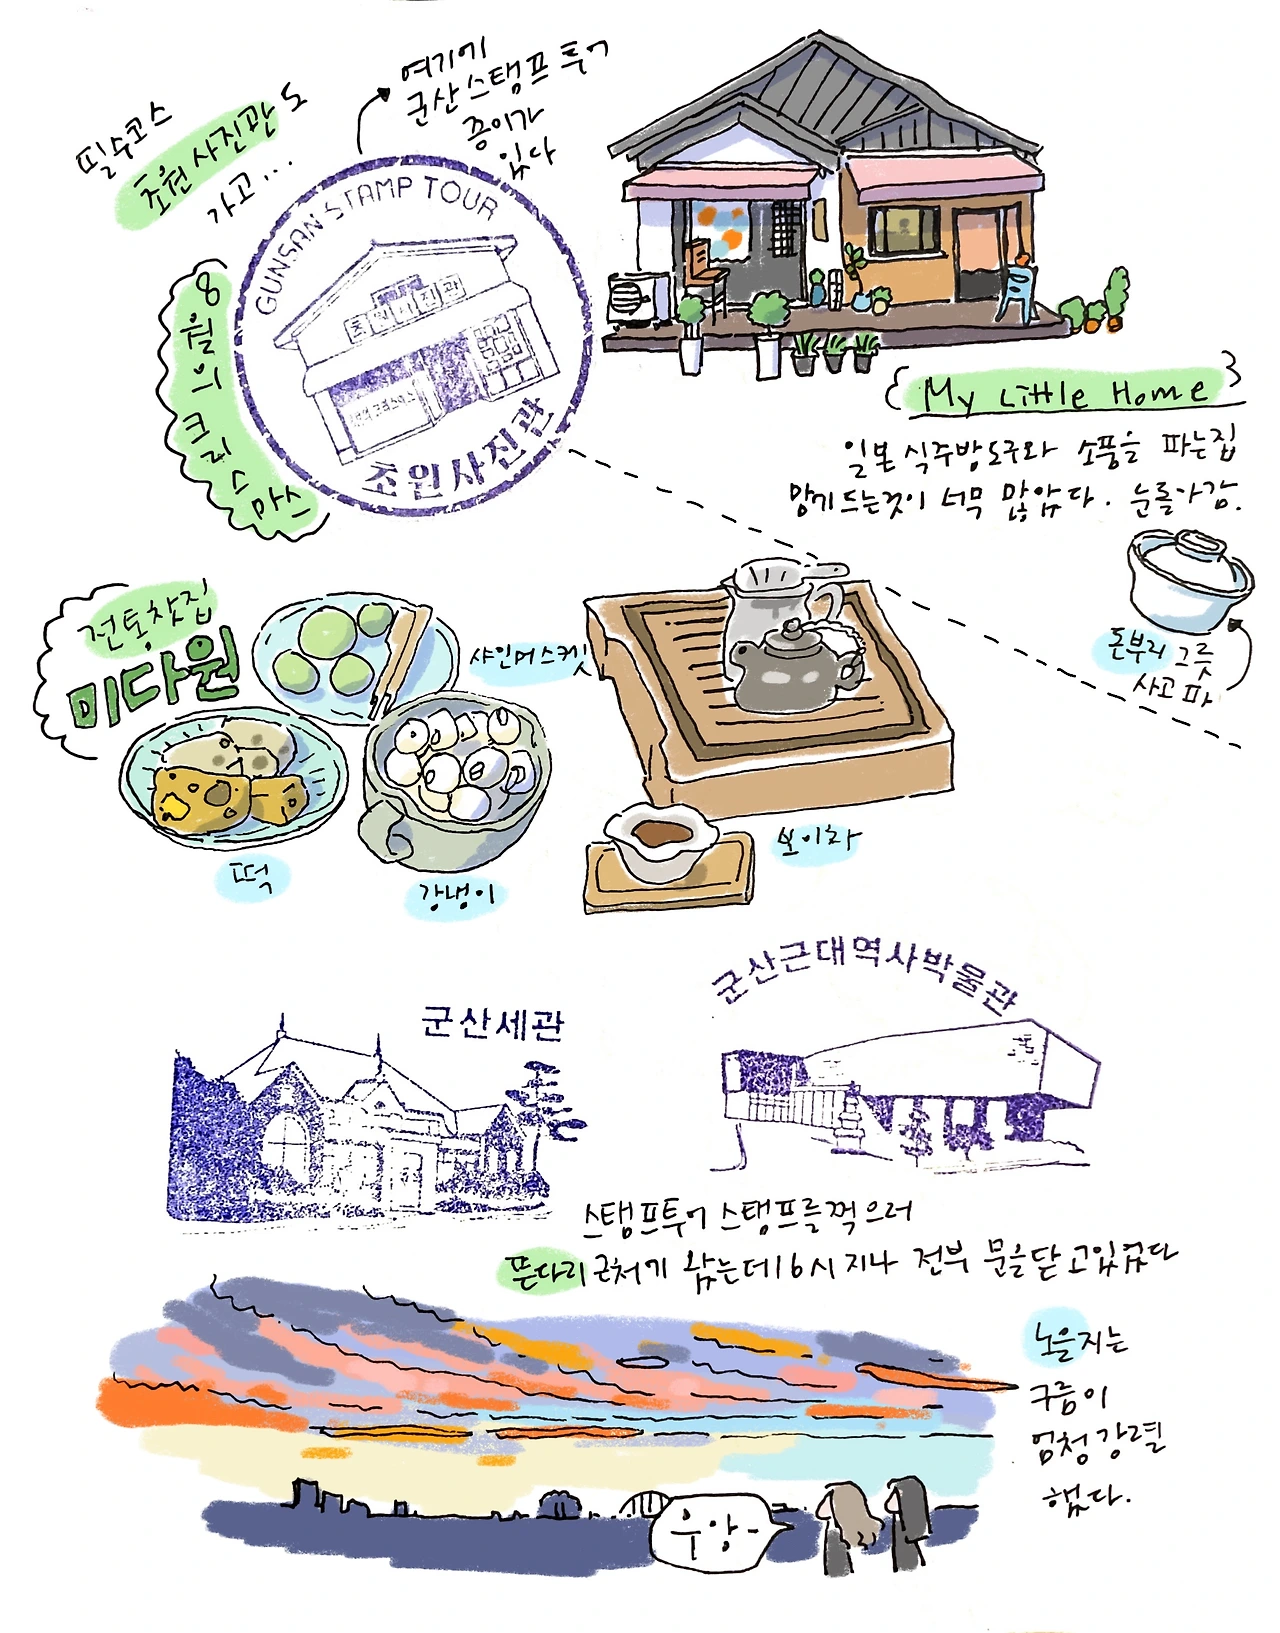 필수코스
초원사진관도
가고..
여기에
군산스탬프투어
종이가
있다
GUNSAN STAMP TOUR
초원사진관
초원사진관
8월의 크리스마스
My Little Home
일본 식주방도구와 소품을 파는집
앙기드는것이 너무 많았다. 눈돌아감.
돈부리 그릇
사고파
전통찻집
미다원
샤인머스켓
떡
강냉이
보이차
군산세관
군산근대역사박물관
스탬프투어 스탬프를찍으러
뜬다리 근처에 왔는데 16시 지나 전부 문을닫고있었다
노을지는
구름이
엄청강렬
했다.
우앙-